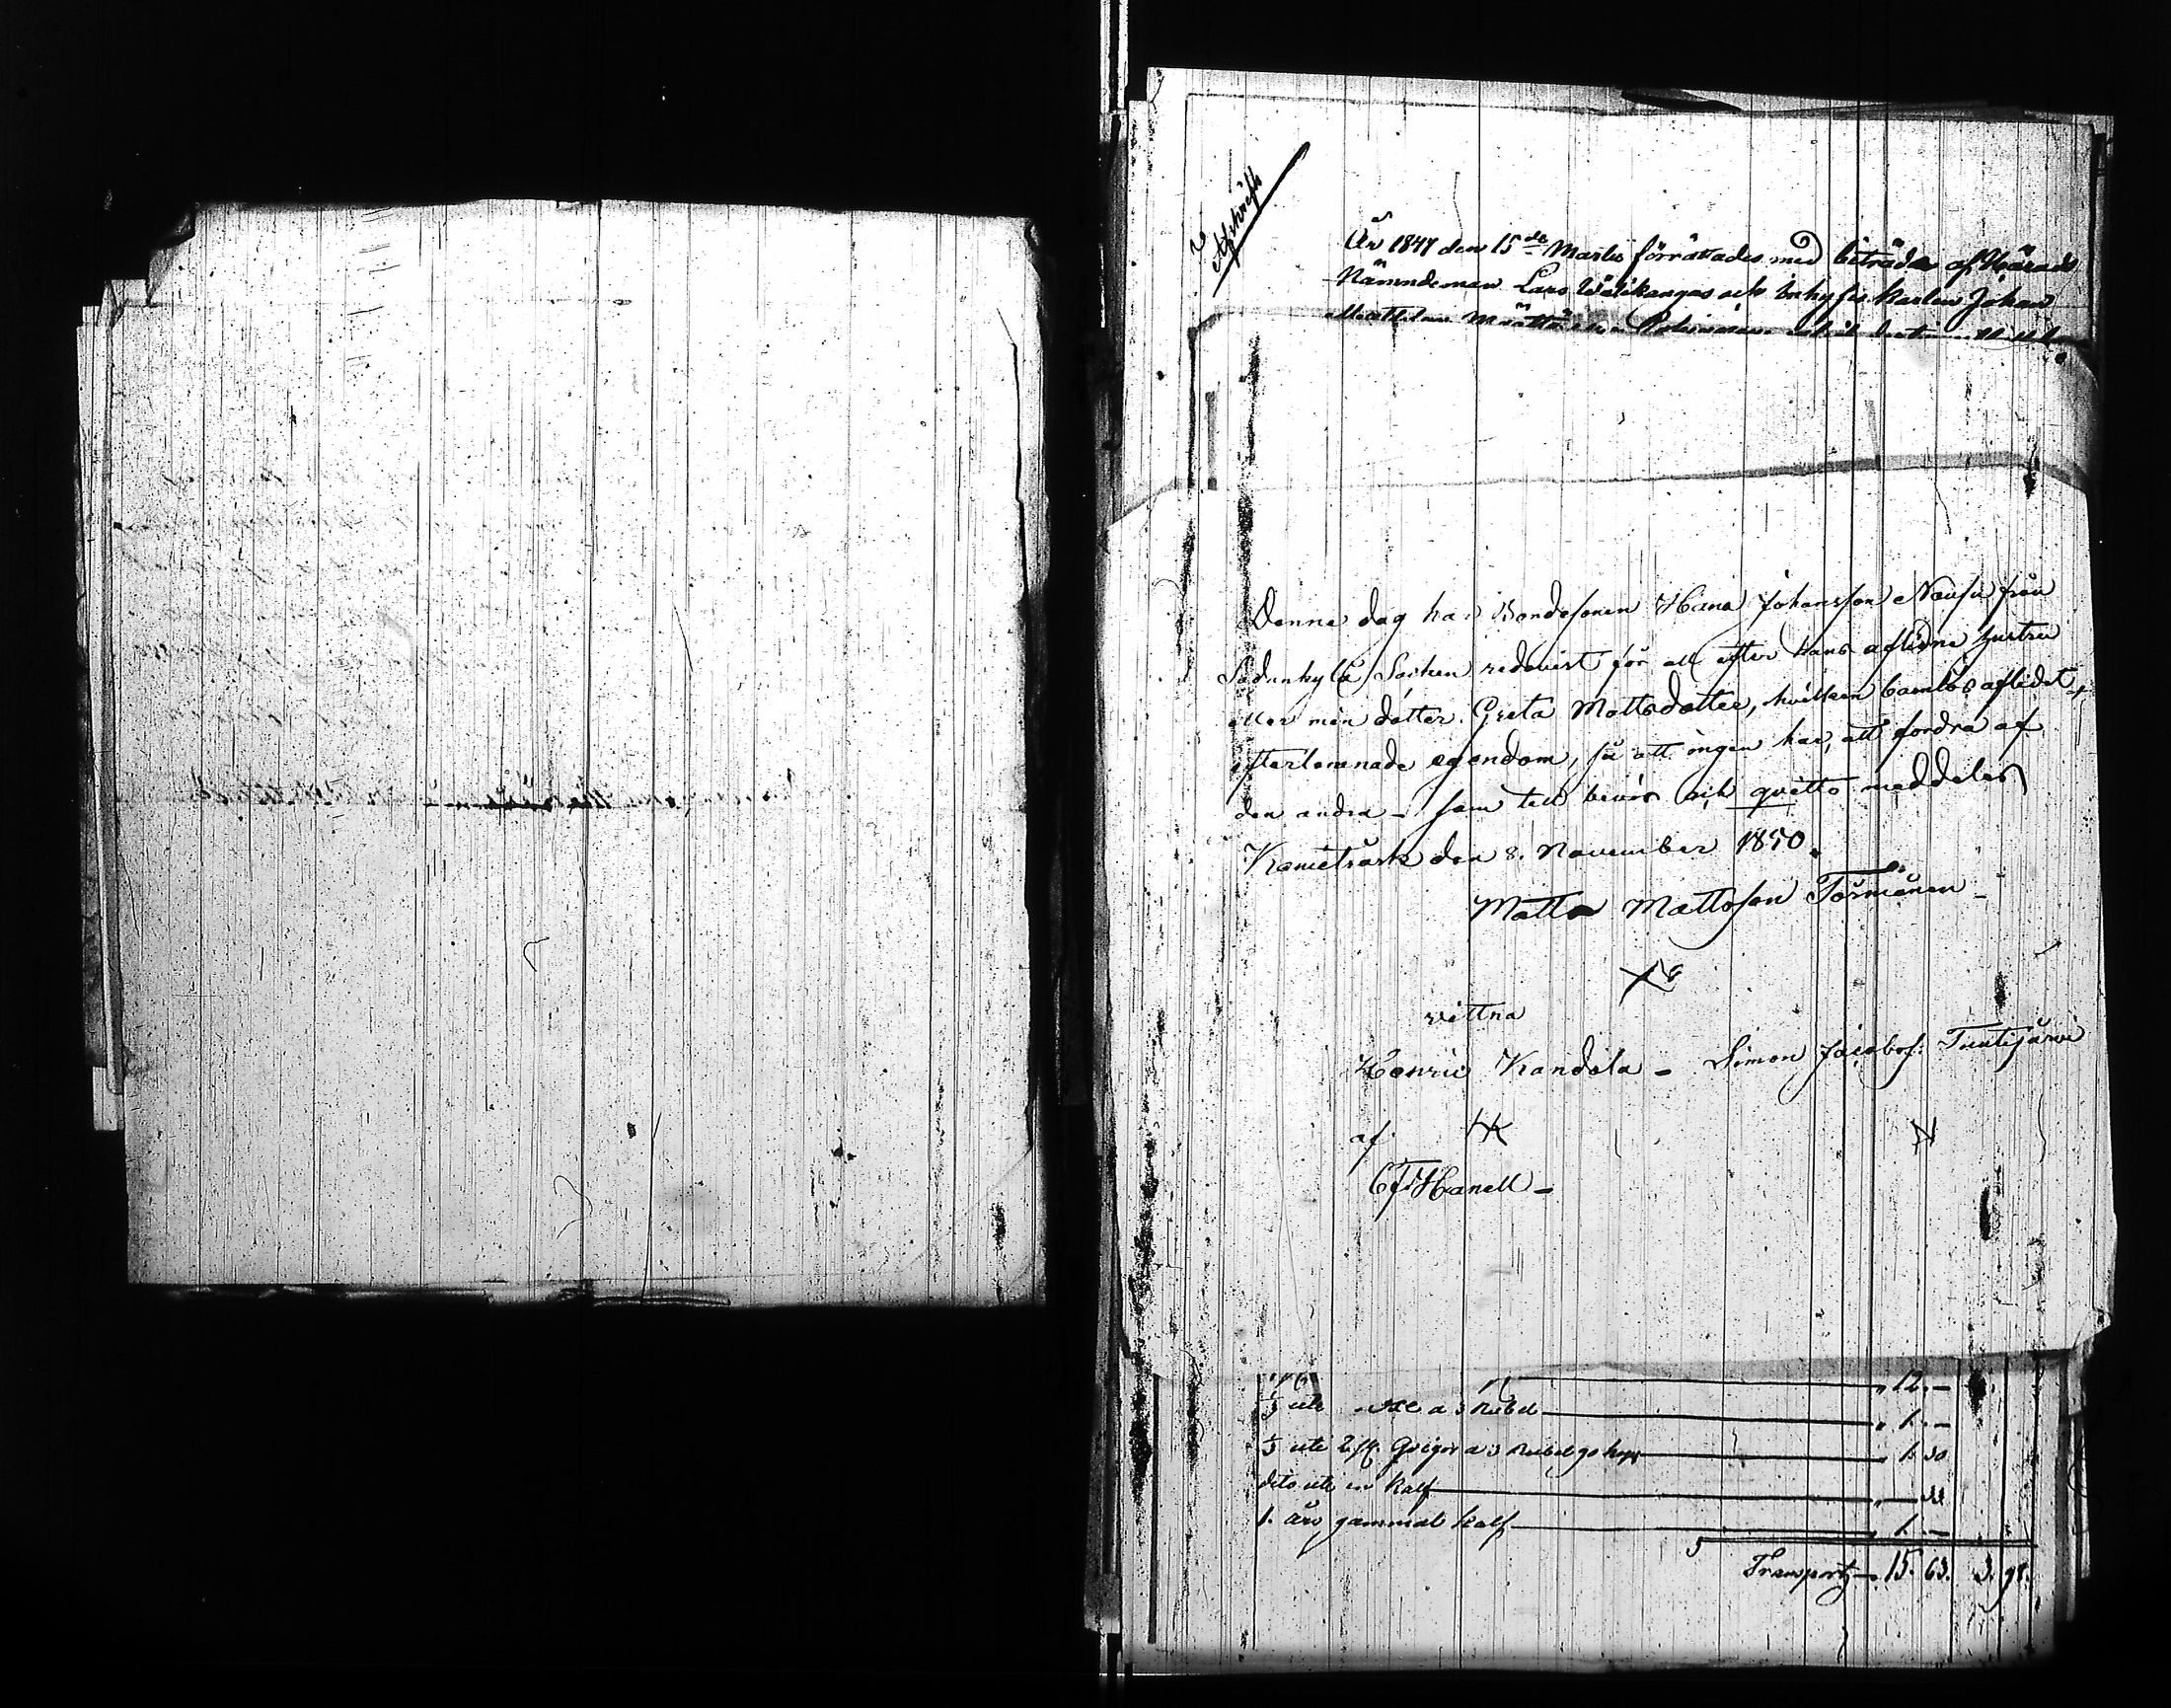 Afskrift
År 1847 den 15de Martii förrättades med biträde af Härads
Nämndeman Lars Wälikangas och Inhyses karlen Johan
Denna dag har Bondesonen Hans Johansson Nausu från
Sodankylä Socken redovist för all efter hans aflidne hustru
eller min dotter Greta Mattsdotter, hvilken barnlös aflidet,
efterlemnade egendom, så att ingen har, att fordra af
den andra – som till bevis och qvitto meddelas
Kemiträsk den 8. November 1850.
Matts Mattsson Törmänen –
vittna
Henric Kandela – Simon Jacobss: Tuutijärvi
af.
Hanell –
" 12. –
1/3 uti a 3 Rubel " 1. –
1/3 uti 2 st. Qvigor a 3 Rubel 90 kop " 1. 30
dito uti en kalf " – 33
1. års gammal kalf " 1. –
Transport " 15. 63. 3. 98.